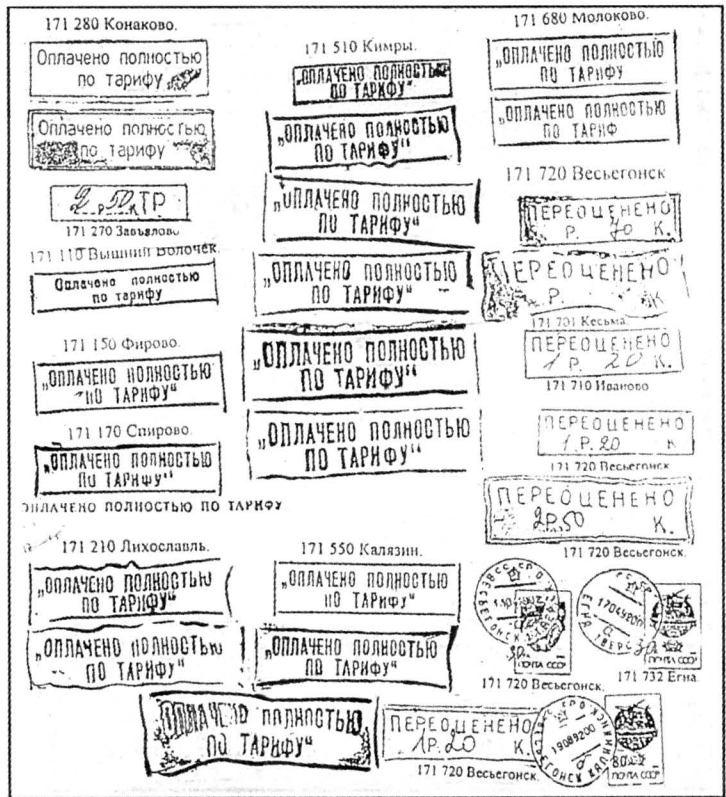 171 280 Конаково.
Оплачено полностью
по тарифу
Оплачено полностью
по тарифу
2 р. 50 к ТР
171 270 Завьялово
171 110 Вышний Волочек.
Оплачено полностью
по тарифу
171 150 Фирово.
„ОПЛАЧЕНО ПОЛНОСТЬЮ
ПО ТАРИФУ“
171 170 Спирово.
„ОПЛАЧЕНО ПОЛНОСТЬЮ
ПО ТАРИФУ“
ОПЛАЧЕНО ПОЛНОСТЬЮ ПО ТАРИФУ
171 210 Лихославль.
„ОПЛАЧЕНО ПОЛНОСТЬЮ
ПО ТАРИФУ“
„ОПЛАЧЕНО ПОЛНОСТЬЮ
ПО ТАРИФУ“
„ОПЛАЧЕНО ПОЛНОСТЬЮ
ПО ТАРИФУ“
171 510 Кимры.
„ОПЛАЧЕНО ПОЛНОСТЬЮ
ПО ТАРИФУ“
„ОПЛАЧЕНО ПОЛНОСТЬЮ
ПО ТАРИФУ“
„ОПЛАЧЕНО ПОЛНОСТЬЮ
ПО ТАРИФУ“
„ОПЛАЧЕНО ПОЛНОСТЬЮ
ПО ТАРИФУ“
„ОПЛАЧЕНО ПОЛНОСТЬЮ
ПО ТАРИФУ“
„ОПЛАЧЕНО ПОЛНОСТЬЮ
ПО ТАРИФУ“
171 550 Калязин.
„ОПЛАЧЕНО ПОЛНОСТЬЮ
ПО ТАРИФУ“
„ОПЛАЧЕНО ПОЛНОСТЬЮ
ПО ТАРИФУ“
171 680 Молоково.
„ОПЛАЧЕНО ПОЛНОСТЬЮ
ПО ТАРИФУ
„ОПЛАЧЕНО ПОЛНОСТЬЮ
ПО ТАРИФ
171 720 Весьегонск
ПЕРЕОЦЕНЕНО
Р. 70 К.
ПЕРЕОЦЕНЕНО
Р. К
171 701 Кесьма.
ПЕРЕОЦЕНЕНО
1 Р. 20 К.
171 710 Иваново
ПЕРЕОЦЕНЕНО
1.Р.20 К
171 720 Весьегонск
ПЕРЕОЦЕНЕНО
2Р.50 К.
171 720 Весьегонск.
ПОЧТА СССР
171 720 Весьегонск.
ПОЧТА СССР
171 732 Егна.
ПЕРЕОЦЕНЕНО
1Р.20 К.
171 720 Весьегонск.
ВЕСЬЕГОНСК КАЛИНИНСК
19089200
80
ПОЧТА СССР